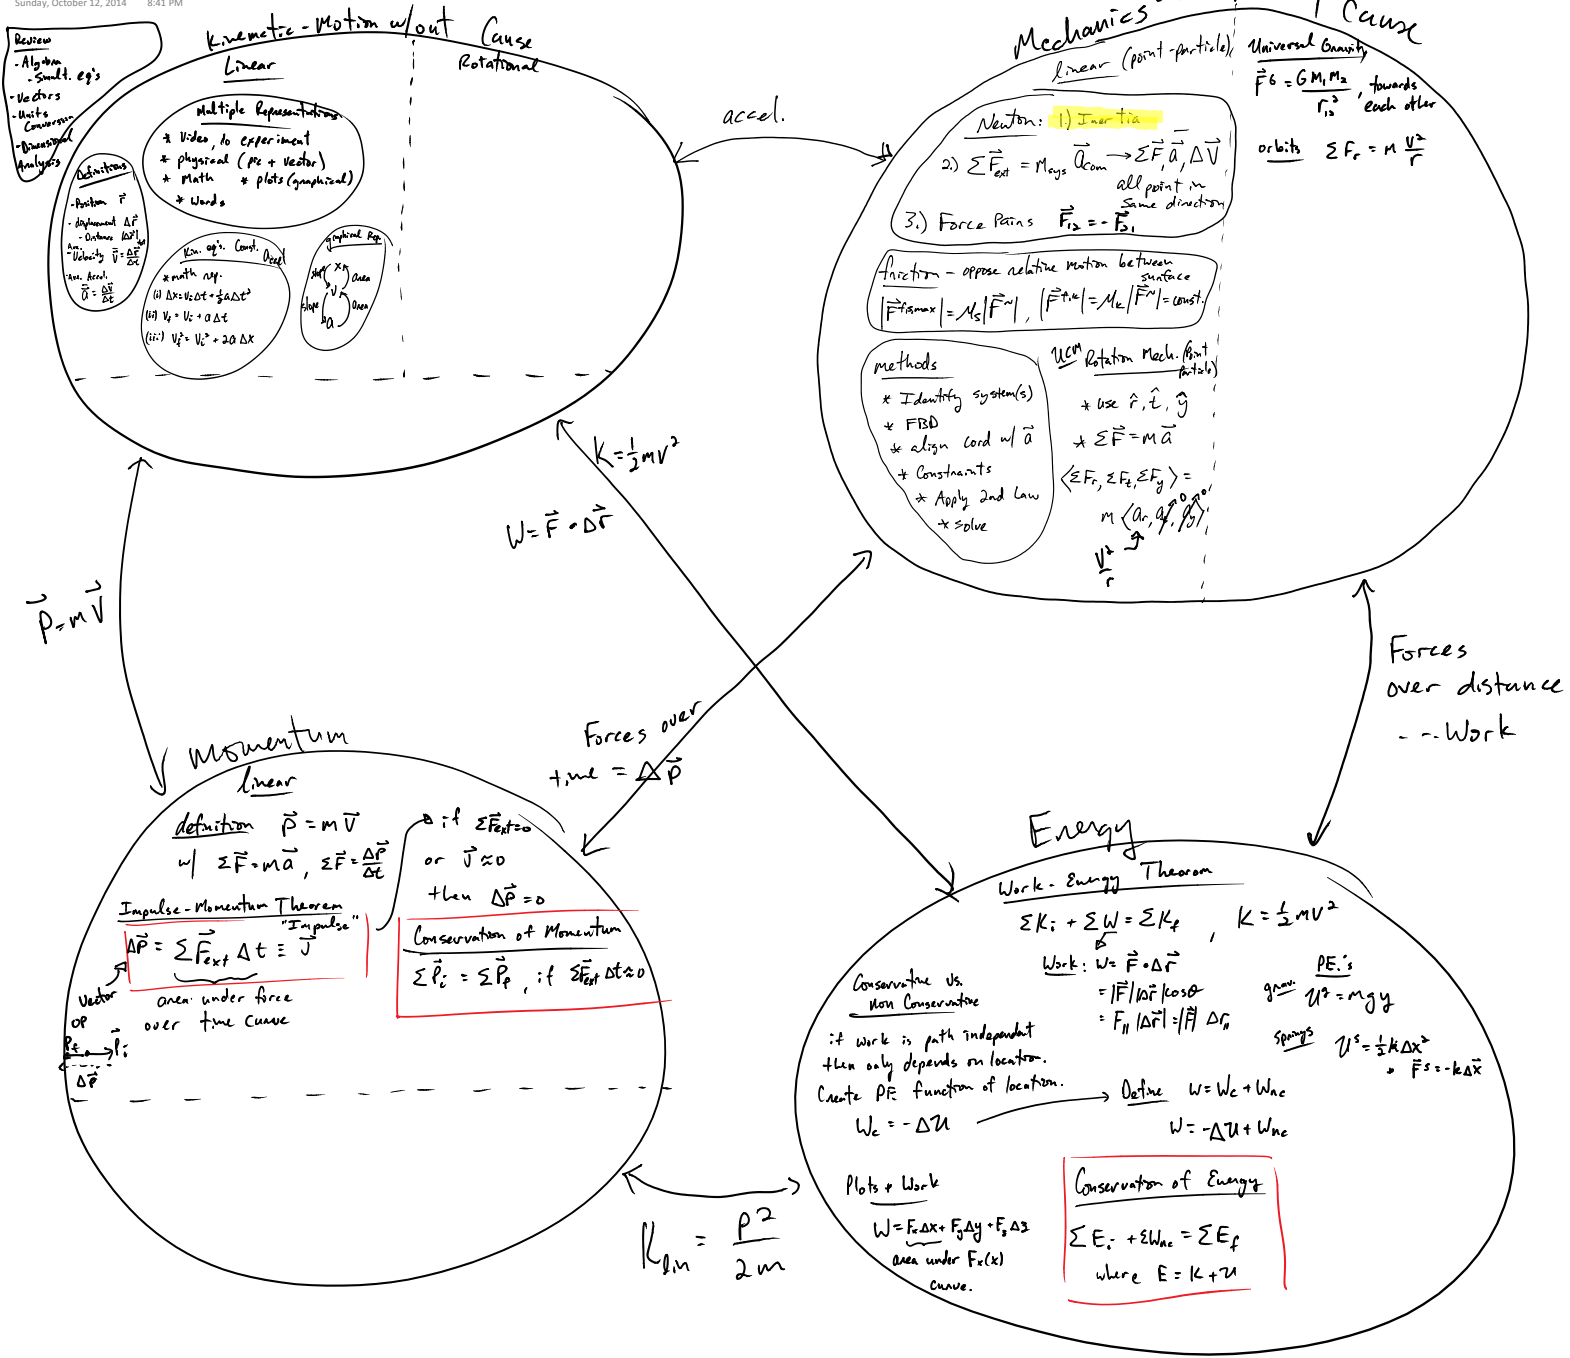 Sunday, October 12, 2014 8:41 PM
Review
- Algebra
- Simult. eq's
- Vectors
- Units Conversion
- Dimensional Analysis
Kinematic - Motion w/out Cause
Linear
Rotational
Multiple Representations
* Video, do experiment
* physical (pic + vector)
* Math * plots (graphical)
* Words
Definitions
- Position r⃗
- displacement Δr⃗
- Distance |Δr⃗|
- Ave. Velocity v⃗ = Δr⃗/Δt
- Ave. Accel. a⃗ = Δv⃗/Δt
Kin. eq's. Const. accel
* math rep.
(i) Δx = ViΔt + ½aΔt²
(ii) Vf = Vi + aΔt
(iii) Vf² = Vi² + 2aΔx
graphical Rep.
slope x area
v
slope area
a
accel.
Mechanics - Cause
linear (point-particle)
Newton: 1.) Inertia
2.) ΣF⃗ext = Msys a⃗com → ΣF⃗, a⃗, ΔV⃗
all point in
same direction
3.) Force Pairs F⃗12 = -F⃗21
friction - oppose relative motion between
surface
|F⃗fs,max| = μs|F⃗N|, |F⃗f,k| = μk|F⃗N| = const.
methods
* Identify system(s)
* FBD
* align cord w/ a⃗
* Constraints
* Apply 2nd Law
* solve
UCM Rotation Mech. (Point particle)
* use r̂, t̂, ŷ
* ΣF⃗ = ma⃗
⟨ΣFr, ΣFt, ΣFy⟩ =
m⟨ar, at, ay⟩ 0 0
V²/r
Universal Gravity
F⃗G = GM1M2/r12², towards each other
orbits ΣFr = m V²/r
K = ½mv²
W = F⃗ • Δr⃗
P⃗ = mV⃗
Forces over
time = ΔP⃗
Forces
over distance
---Work
Momentum
linear
definition P⃗ = mV⃗
w/ ΣF⃗ = ma⃗, ΣF⃗ = ΔP⃗/Δt
Impulse-Momentum Theorem
"Impulse"
ΔP⃗ = ΣF⃗ext Δt ≡ J⃗
area under force
over time curve
Vector
OP
Pf Pi
ΔP⃗
if ΣF⃗ext = 0
or J⃗ ≈ 0
then ΔP⃗ = 0
Conservation of Momentum
ΣP⃗i = ΣP⃗f, if ΣF⃗ext Δt ≈ 0
Klin = P²/2m
Energy
Work - Energy Theorem
ΣKi + ΣW = ΣKf, K = ½mv²
Work: W = F⃗ • Δr⃗
= |F⃗||Δr⃗|cosθ
= F∥|Δr⃗| = |F⃗| Δr∥
PE.'s
grav. Ug = mgy
springs Us = ½kΔx²
F⃗s = -kΔx⃗
Conservative vs.
non Conservative
if work is path independent
then only depends on location.
Create PE function of location.
Wc = -ΔU
Define W = Wc + Wnc
W = -ΔU + Wnc
Plots + Work
W = FxΔx + FyΔy + FzΔz
area under Fx(x)
curve.
Conservation of Energy
ΣEi + ΣWnc = ΣEf
where E = K + U